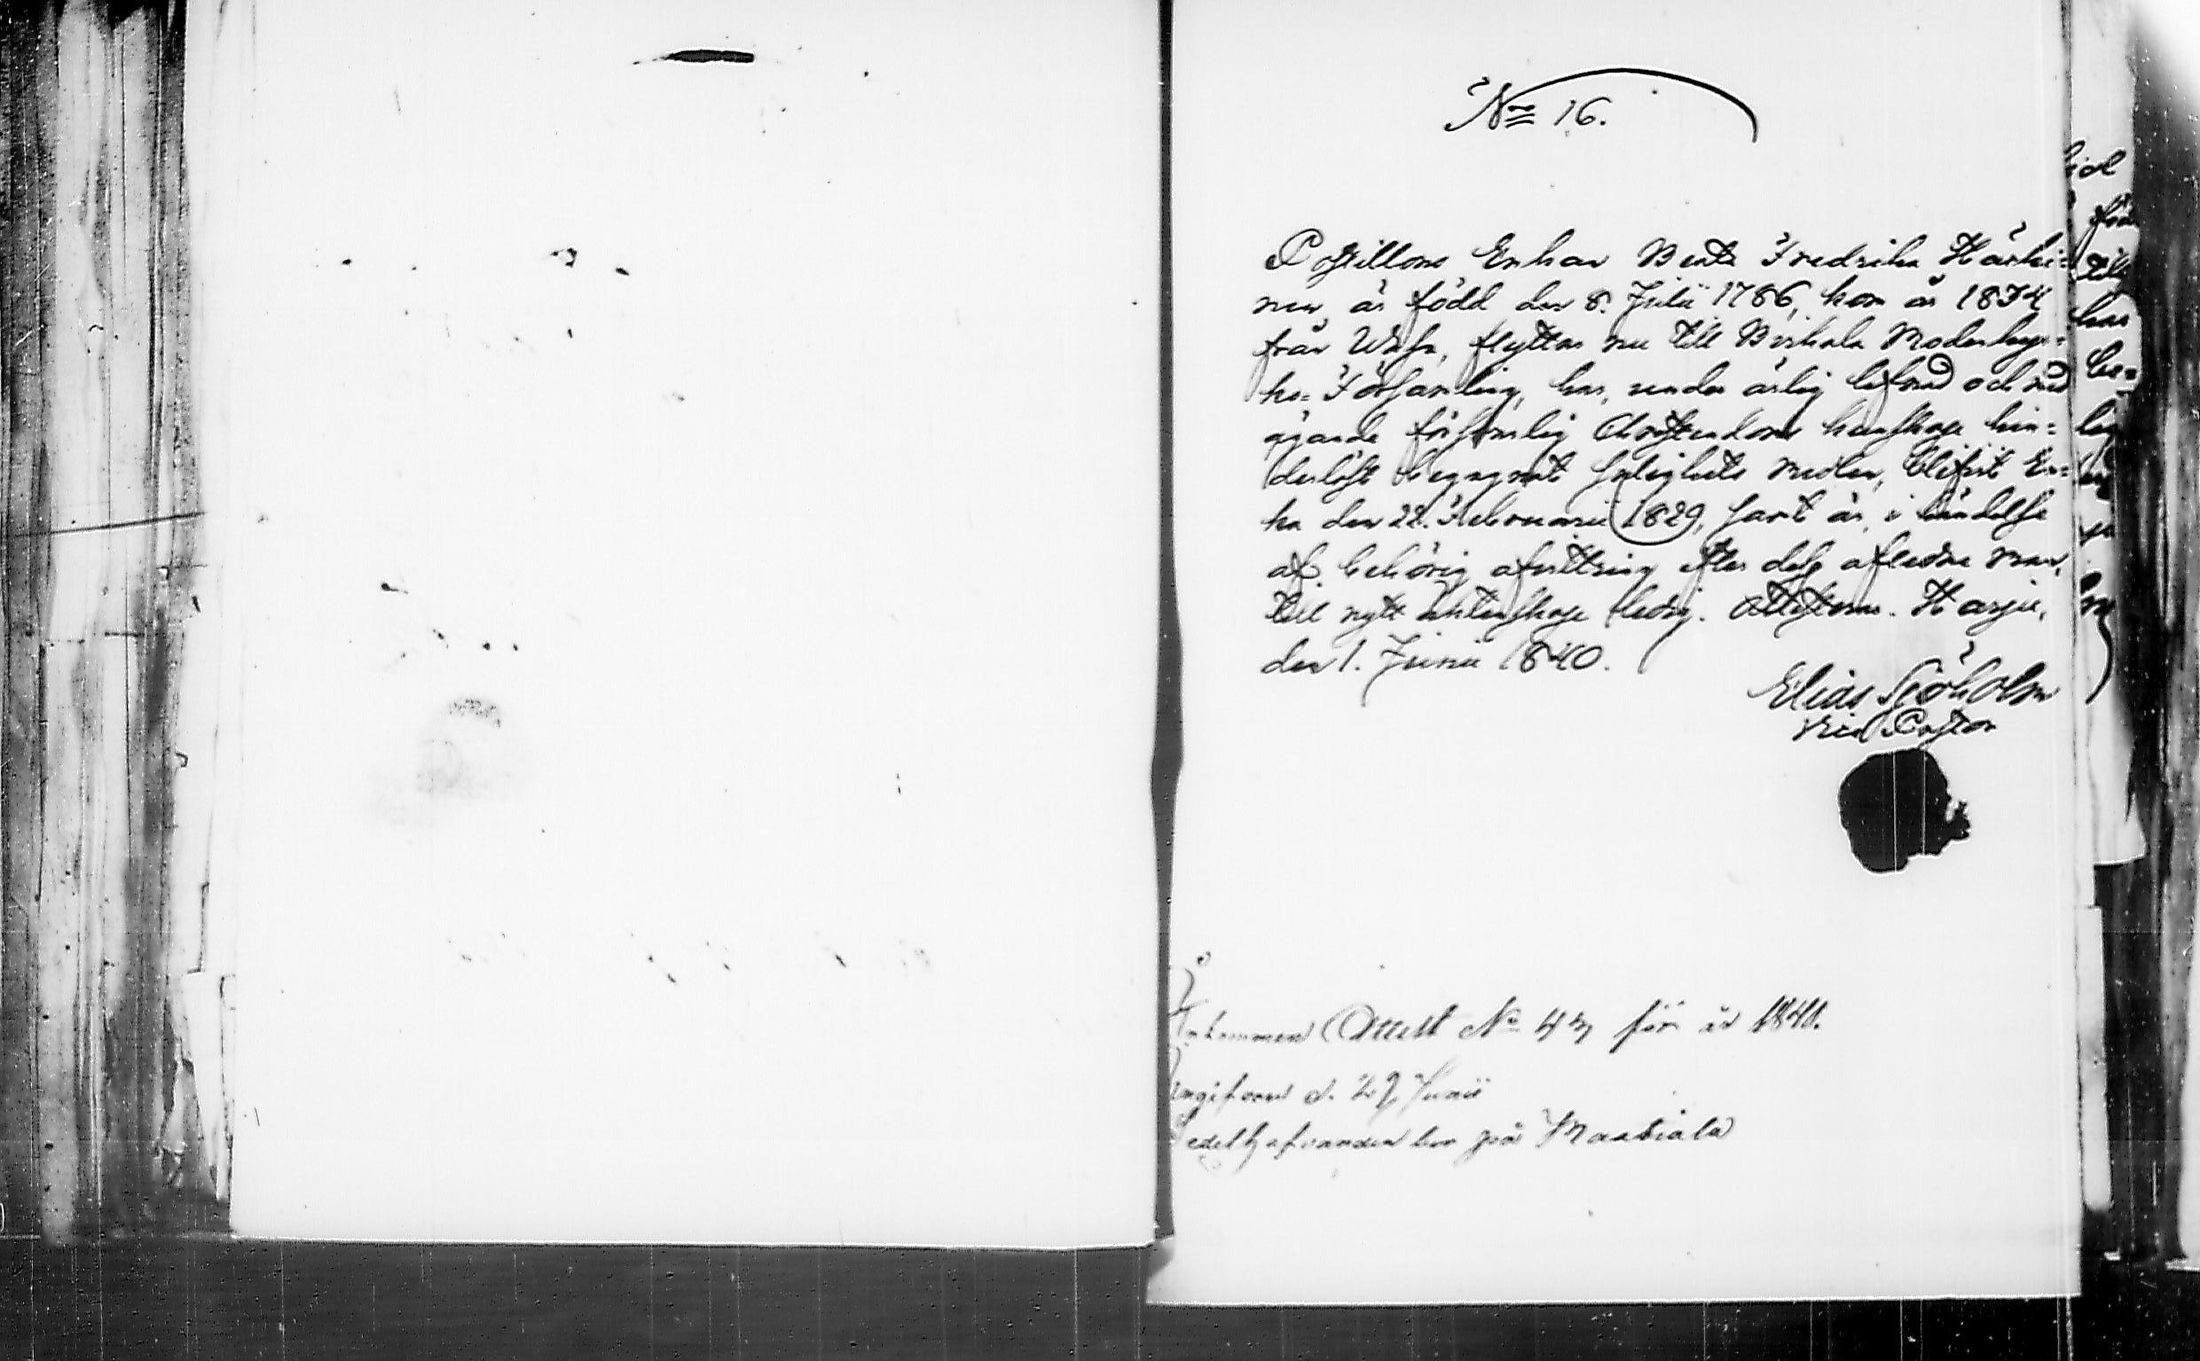 No 16.
Postillons Enkan Beata Fredrika Härkö=
nen, är född den 8. Julii 1786, kom år 1834
från Wasa, flyttar nu till Birkala Moderkyr=
ko=Församling, har, under ärlig lefnad och med
ägande försvarlig Christendoms kunskap hin=
derlöst begagnat salighets medlen, blifvit En=
ka den 22. Februarii 1829, samt är, i händelse
af behörig afvittring efter dess aflidne man,
till nytt äktenskap ledig. Attesteras. Harju,
den 1. Junii 1840.
Elias Sjöholm
Vice Pastor
Inkommen Attest No 43 för år 1841.
Ingifven d. 27 Junii
Sedelhafvanden bor på Maatiala